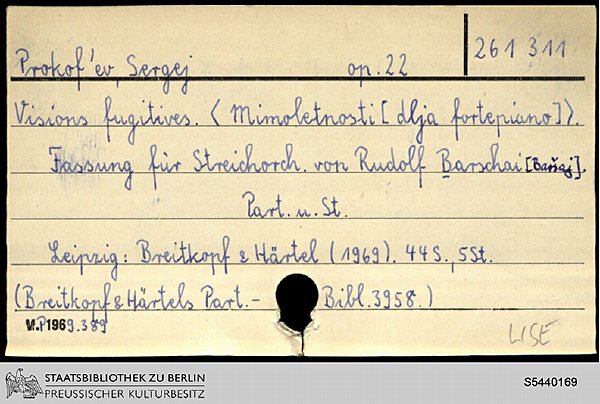 Prokof'ev, Sergej op. 22 261 311
Visions fugitives. < Mimoletnosti [dlja fortepiano]>.
Fassung für Streichorch. von Rudolf Barschai [Baršaj].
Part. u. St.
Leipzig: Breitkopf & Härtel (1969). 44 S., 5 St.
(Breitkopf & Härtels Part.- Bibl. 3958.)
M.P1969.389
LISE
STAATSBIBLIOTHEK ZU BERLIN
PREUSSISCHER KULTURBESITZ
S5440169